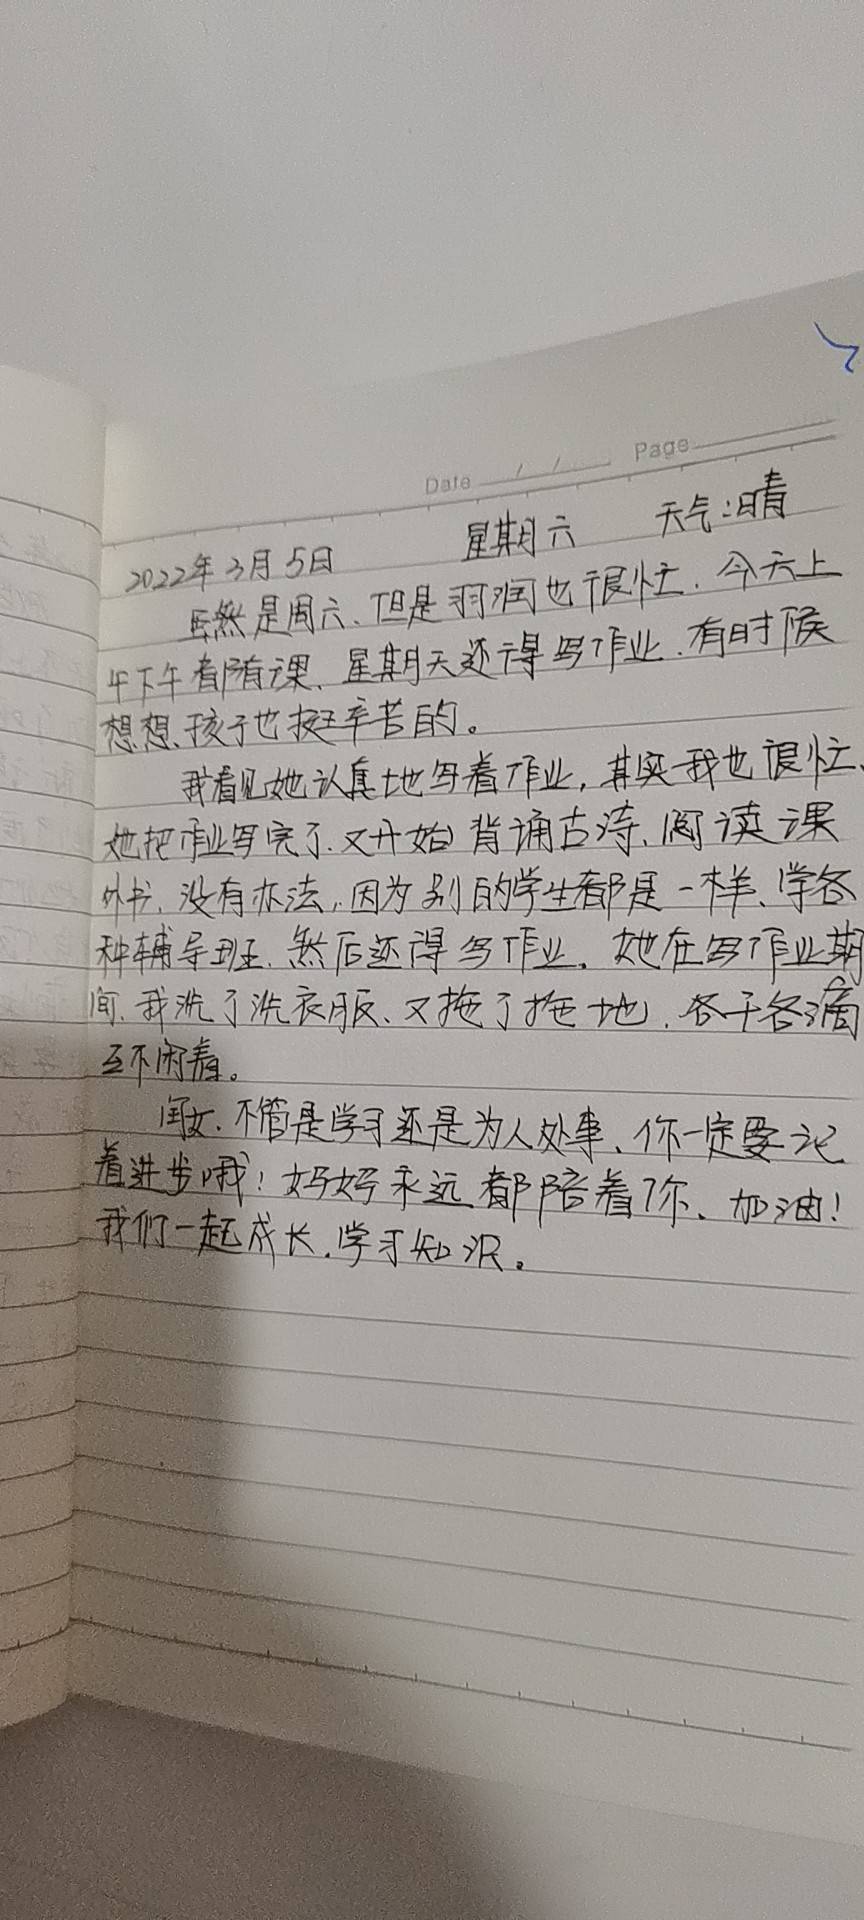 Date / / Page
2022年3月5日 星期六 天气:晴
虽然是周六、但是羽润也很忙、今天上
午下午都有课、星期天还得写作业、有时候
想想、孩子也挺辛苦的。
我看见她认真地写着作业，其实我也很忙、
她把作业写完了、又开始背诵古诗、阅读课
外书，没有办法，因为别的学生都是一样、学各
种辅导班、然后还得写作业。她在写作业期
间、我洗了洗衣服、又拖了拖地，各干各滴
互不闲着。
闺女、不管是学习还是为人处事、你一定要记
着进步哦！妈妈永远都陪着你、加油！
我们一起成长、学习知识。